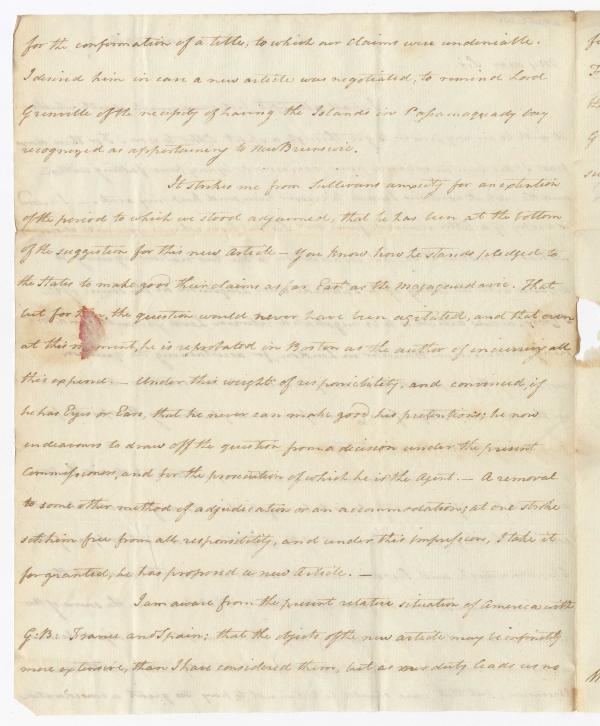 for the confirmation of a title, to which our claims were undeniable.
I desired him in case a new article was negotiated, to remind Lord
Grenville of the necessity of having the Islands in Passamaquady bay
recognized as appertaining to New Brunswic.
It strikes me from Sullivans anxiety for an extention
of the period to which we stood adjourned, that he has been at the bottom
of the suggestion for this new Article – you know how he stands pledged to
the States to make good their claims as far East as the Magagaudavic. That
but for him, the question would never have been agitated, and that even
at this moment, he is reprobated in Boston as the author of incurring all
this expence. – Under this weight of responsibility, and convinced, if
he has Eyes or Ears, that he never can make good his pretentions; he now
endeavours to draw off the question from a decision under the present
Commissioners, and for the prosecution of which he is the Agent. – A removal
to some other method of adjudication or an accommodation; at one stroke
sets him free from all responsibility, and under this impression, I take it
for granted, he has proposed a new Article. –
I am aware from the present relative situation of America with
G: B: France and Spain; that the objects of the new article may be infinitely
more extensive, than I have considered them, but as our duty leads us no